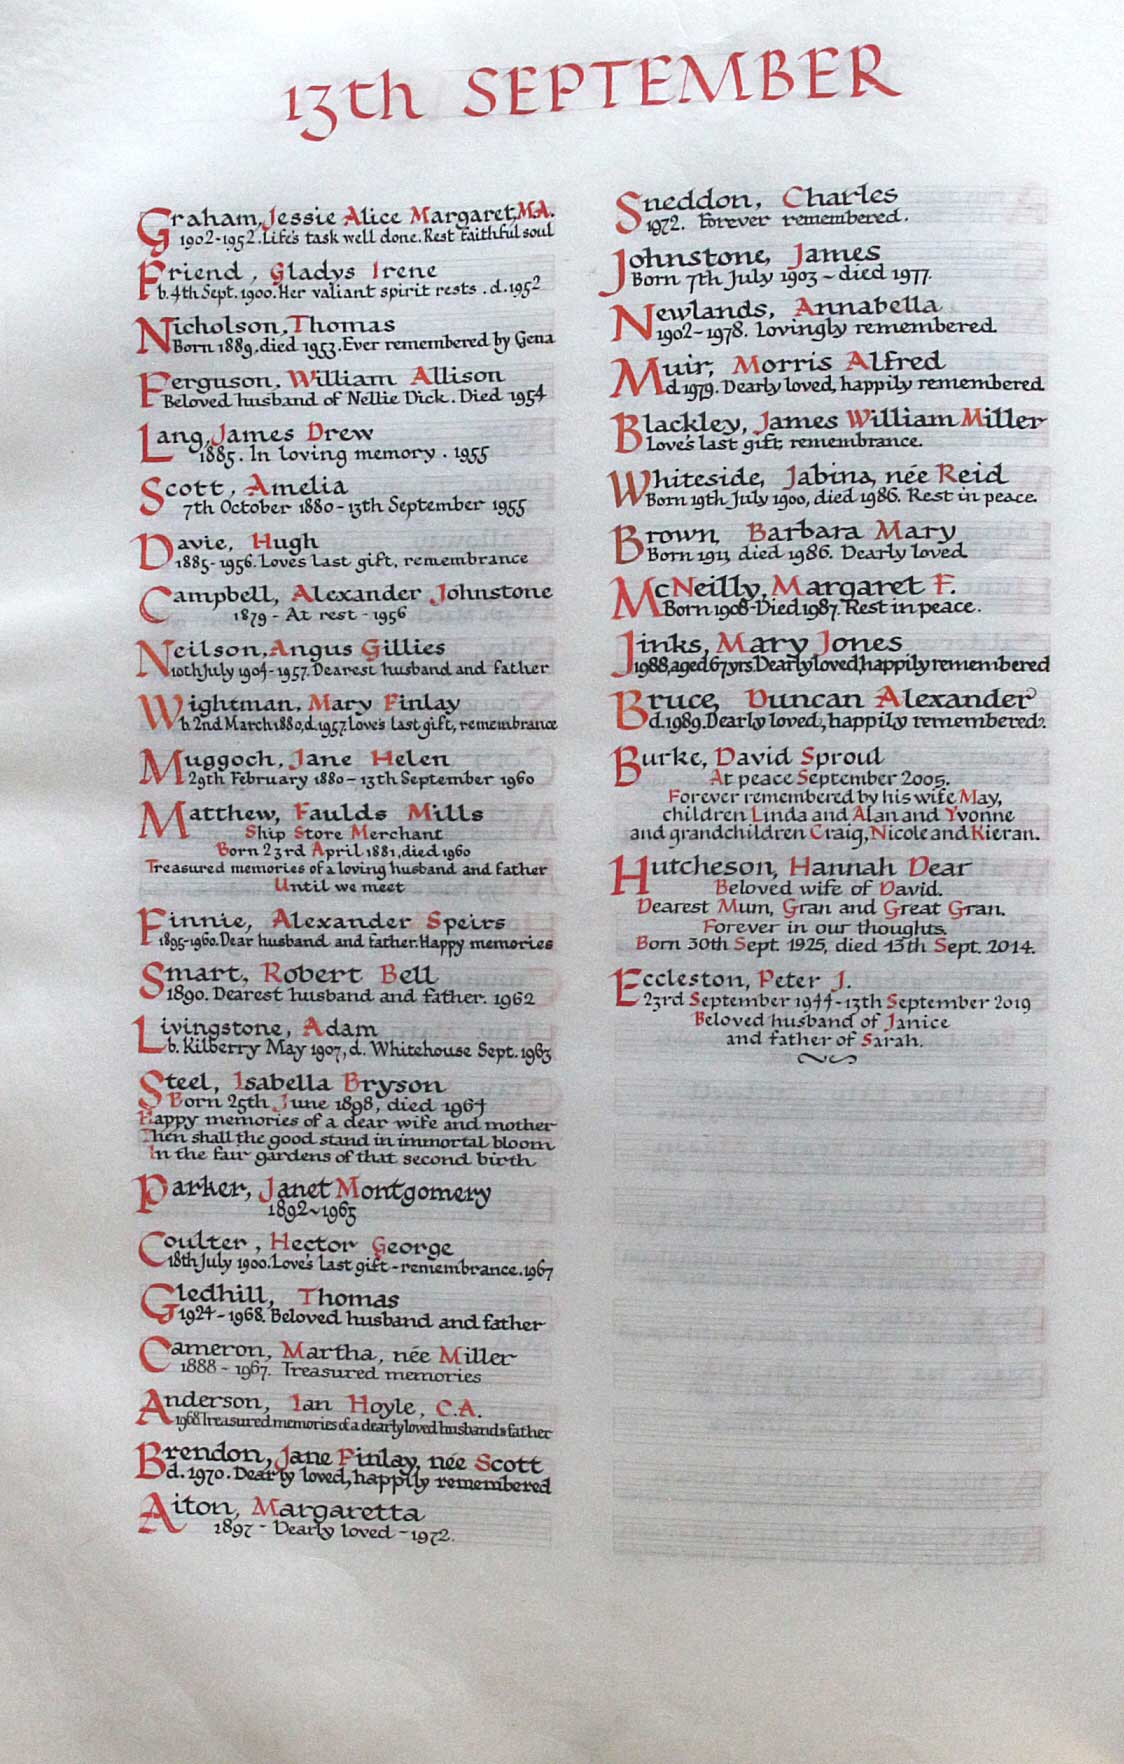 13th SEPTEMBER
Graham, Jessie Alice Margaret, M.A.
1902-1952. Life's task well done. Rest faithful soul
Friend, Gladys Irene
b. 4th Sept. 1900. Her valiant spirit rests. d. 1952
Nicholson, Thomas
Born 1889, died 1953. Ever remembered by Gena
Ferguson, William Allison
Beloved husband of Nellie Dick. Died 1954
Lang, James Drew
1885. In loving memory. 1955
Scott, Amelia
7th October 1880-13th September 1955
Davie, Hugh
1885-1956. Loves last gift, remembrance
Campbell, Alexander Johnstone
1879 - At rest - 1956
Neilson, Angus Gillies
10th July 1904-1957. Dearest husband and father
Wightman, Mary Finlay
b. 2nd March 1880, d. 1957. Love's last gift, remembrance
Muggoch, Jane Helen
29th February 1880-13th September 1960
Matthew, Faulds Mills
Ship Store Merchant
Born 23rd April 1881, died 1960
Treasured memories of a loving husband and father
Until we meet
Finnie, Alexander Speirs
1895-1960. Dear husband and father. Happy memories
Smart, Robert Bell
1890. Dearest husband and father. 1962
Livingstone, Adam
b. Kilberry May 1907, d. Whitehouse Sept. 1963
Steel, Isabella Bryson
Born 25th June 1898, died 1964
Happy memories of a dear wife and mother
Then shall the good stand in immortal bloom
In the fair gardens of that second birth
Parker, Janet Montgomery
1892~1965
Coulter, Hector George
18th July 1900. Love's last gift-remembrance. 1967
Gledhill, Thomas
1924-1968. Beloved husband and father
Cameron, Martha, née Miller
1888 - 1967. Treasured memories
Anderson, Ian Hoyle, C.A.
1968 Treasured memories of a dearly loved husband & father
Brendon, Jane Finlay, née Scott
d. 1970. Dearly loved, happily remembered
Aiton, Margaretta
1897 - Dearly loved - 1972.
Sneddon, Charles
1972. Forever remembered.
Johnstone, James
Born 7th July 1903 ~ died 1977.
Newlands, Annabella
1902-1978. Lovingly remembered.
Muir, Morris Alfred
d. 1979. Dearly loved, happily remembered.
Blackley, James William Miller
Love's last gift, remembrance.
Whiteside, Jabina, née Reid
Born 19th July 1900, died 1986. Rest in peace.
Brown, Barbara Mary
Born 1911, died 1986. Dearly loved.
McNeilly, Margaret F.
Born 1908-Died 1987. Rest in peace.
Jinks, Mary Jones
1988, aged 67 yrs. Dearly loved, happily remembered
Bruce, Duncan Alexander
d. 1989. Dearly loved, happily remembered.
Burke, David Sproul
At peace September 2005.
Forever remembered by his wife May,
children Linda and Alan and Yvonne
and grandchildren Craig, Nicole and Kieran.
Hutcheson, Hannah Dear
Beloved wife of David.
Dearest Mum, Gran and Great Gran.
Forever in our thoughts.
Born 30th Sept. 1925, died 13th Sept. 2014.
Eccleston, Peter J.
23rd September 1944-13th September 2019
Beloved husband of Janice
and father of Sarah.